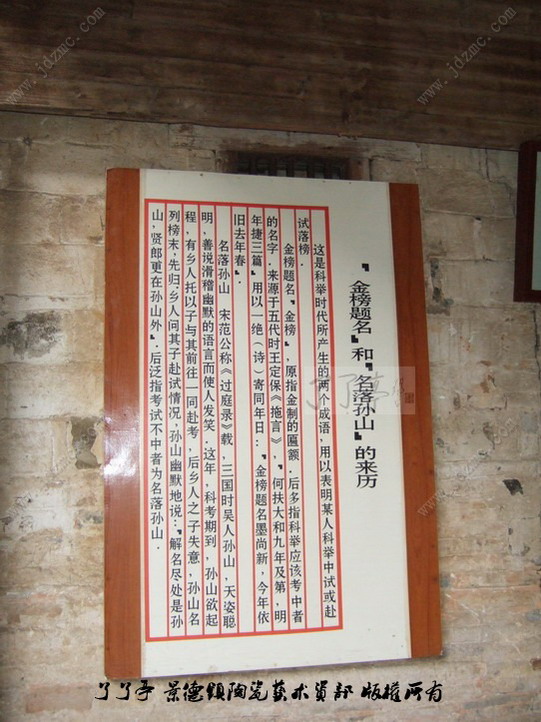 『金榜题名』和『名落孙山』的来历
这是科举时代所产生的两个成语，用以表明某人科举中试或赴
试落榜．
金榜题名『金榜』，原指金制的匾额．后多指科举应该考中者
的名字．来源于五代时王定保《拖言》，『何扶大和九年及第，明
年捷三篇』用以一绝（诗）寄同年日：『金榜题名墨尚新，今年依
旧去年春』．
名落孙山 宋范公称《过庭录》载，三国时吴人孙山，天姿聪
明，善说滑稽幽默的语言而使人发笑．这年，科考期到，孙山欲起
程，有乡人托以子与其前往一同赴考，后乡人之子失意，孙山名
列榜末，先归．乡人问其子赴试情况，孙山幽默地说：『解名尽处是孙
山，贤郎更在孙山外』．后泛指考试不中者为名落孙山．
www.jdzmc.com
www.jdzmc.com
了了亭 景德镇陶瓷艺术资部 版權所有